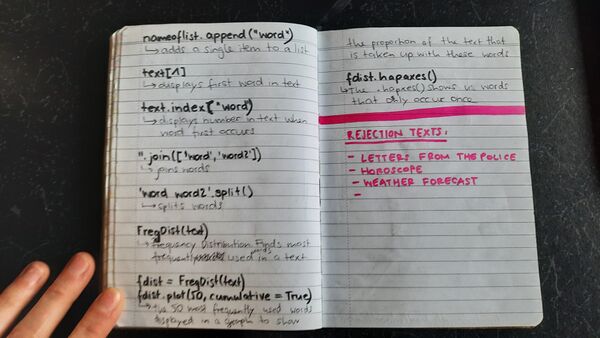 nameoflist.append("word")
↳ adds a single item to a list
text[1]
↳ displays first word in text
text.index["word")
↳ displays number in text when
word first occurs
".join(['word','word2'])
↳ joins words
'word word2'.split()
↳ splits words
FreqDist(text)
↳ frequency Distribution Finds most
frequently words used in a text
fdist = FreqDist(text)
fdist.plot(50, cumulative = True)
↳ the 50 most frequently used words
displayed in a graph to show
the proportion of the text that
is taken up with these words
fdist.hapaxes()
↳ The .hapaxes() shows us words
that only occur once
REJECTION TEXTS:
- LETTERS FROM THE POLICE
- HOROSCOPE
- WEATHER FORECAST
-